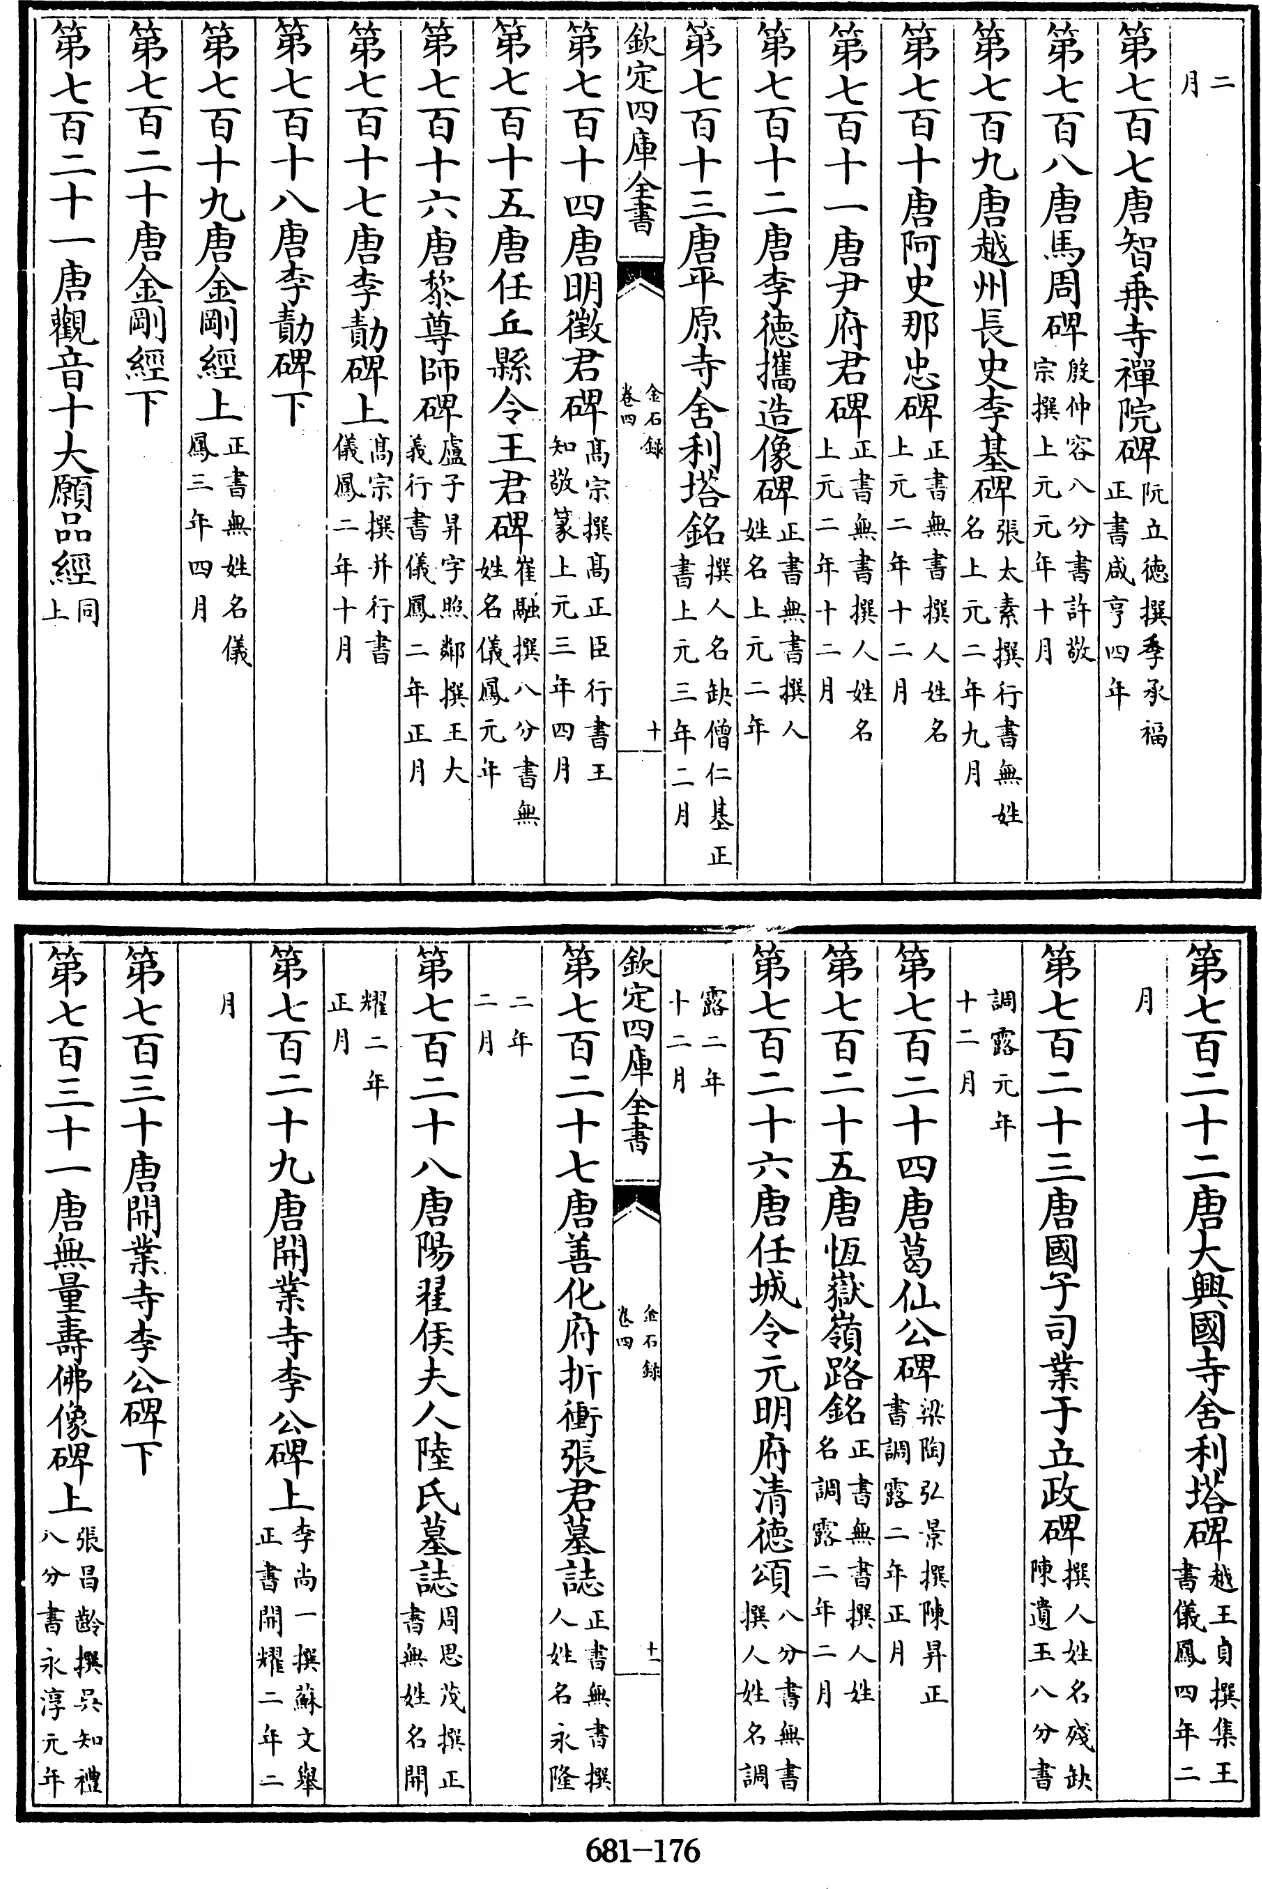 二月
第七百七唐智乗寺禪院碑阮立徳撰季承福正書咸亨四年
第七百八唐馬周碑殷仲容八分書許敬宗撰上元元年十月
第七百九唐越州長史李基碑張太素撰行書無姓名上元二年九月
第七百十唐阿史那忠碑正書無書撰人姓名上元二年十二月
第七百十一唐尹府君碑正書無書撰人姓名上元二年十二月
第七百十二唐李徳擕造像碑正書無書撰人姓名上元二年
第七百十三唐平原寺舍利塔銘撰人名缺僧仁基正書上元三年二月
欽定四庫全書
金石録卷四
十
第七百十四唐明徴君碑髙宗撰髙正臣行書王知敬篆上元三年四月
第七百十五唐任丘縣令王君碑崔融撰八分書無姓名儀鳳元年
第七百十六唐黎尊師碑盧子昇字照鄰撰王大義行書儀鳳二年正月
第七百十七唐李勣碑上髙宗撰并行書儀鳳二年十月
第七百十八唐李勣碑下
第七百十九唐金剛經上正書無姓名儀鳳三年四月
第七百二十唐金剛經下
第七百二十一唐觀音十大願品經同上
第七百二十二唐大興國寺舍利塔碑越王貞撰集王書儀鳳四年二
月
第七百二十三唐國子司業于立政碑撰人姓名殘缺陳遺玉八分書
調露元年十二月
第七百二十四唐葛仙公碑梁陶弘景撰陳昇正書調露二年正月
第七百二十五唐恆嶽嶺路銘正書無書撰人姓名調露二年二月
第七百二十六唐任城令元明府清徳頌八分書無書撰人姓名調
露二年十二月
欽定四庫全書
金石録卷四
十一
第七百二十七唐善化府折衝張君墓誌正書無書撰人姓名永隆
二年二月
第七百二十八唐陽翟侯夫人陸氏墓誌周思茂撰正書無姓名開
耀二年正月
第七百二十九唐開業寺李公碑上李尚一撰蘇文舉正書開耀二年二
月
第七百三十唐開業寺李公碑下
第七百三十一唐無量壽佛像碑上張昌齡撰吳知禮八分書永淳元年
681-176